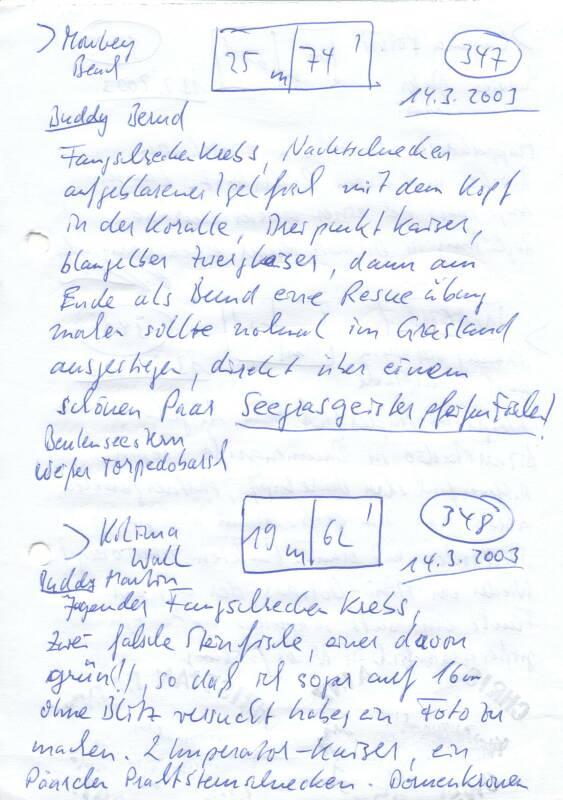 > Monkey Beach
25 m | 74 '
347
14.3.2003
Buddy Bernd
Fangschreckenkrebs, Nacktschnecken
aufgeblasener Igelfisch mit dem Kopf
in der Koralle, Dreipunktkaiser,
blaugelber Zwergkaiser, dann am
Ende als Bernd eine Rescue übung
machen sollte nochmal im Grasland
ausgestiegen, direkt über einem
schönen Paar Seegrasgeisterpfeifenfische!
Beulenseestern
weißer Torpedobarsch
> Kilima Wall
19 m | 62 '
348
14.3.2003
Buddy Martin
Jagender Fangschreckenkrebs,
zwei falsche Steinfische, einer davon
grün(!), so daß ich sogar auf 16m
ohne Blitz versucht habe ein Foto zu
machen. 2 Imperator-Kaiser, ein
Päärchen Prachtsternschnecken. Dornenkronen